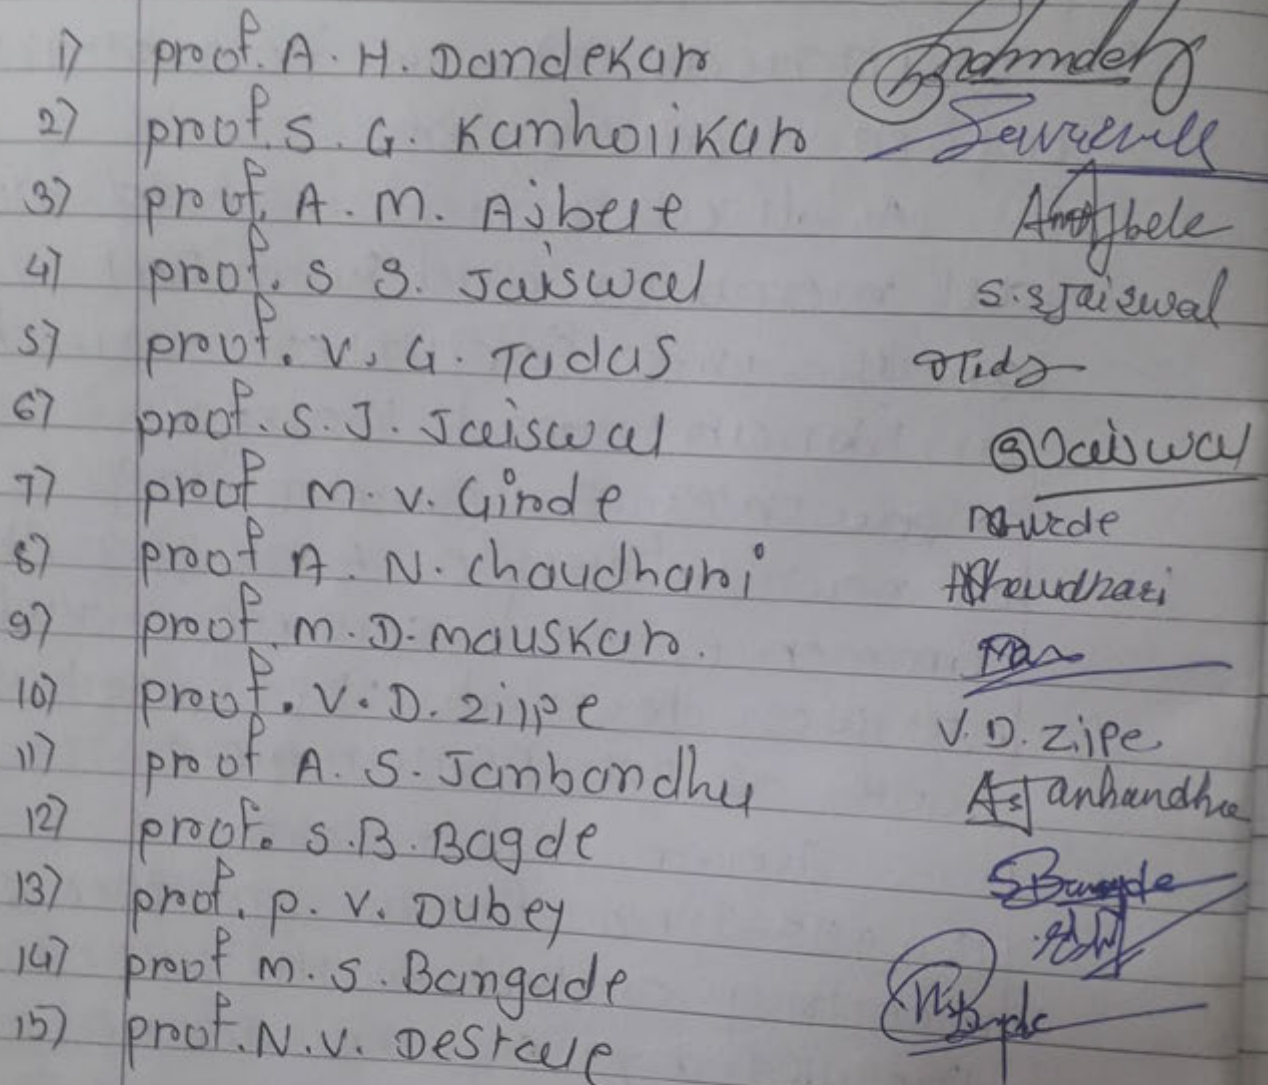 1) proof. A. H. Dandekar
2) proof. S. G. Kanholikar
3) prof. A. M. Ajbele Ajbele
4) proof. S S. Jaiswal S.S Jaiswal
5) prouf. V. G. Tadas
6) proof. S. J. Jaiswal Jaiswal
7) proof M. V. Girde
8) proof A. N. Chaudhari Choudhari
9) proof M. D. Mauskar.
10) proof. V. D. Zilpe V. D. Zilpe
11) proof A. S. Janbandhu ASJanbandhu
12) proof. S. B. Bagde SBagde
13) prof. P. V. Dubey
14) proof M. S. Bangade
15) prof. N. V.